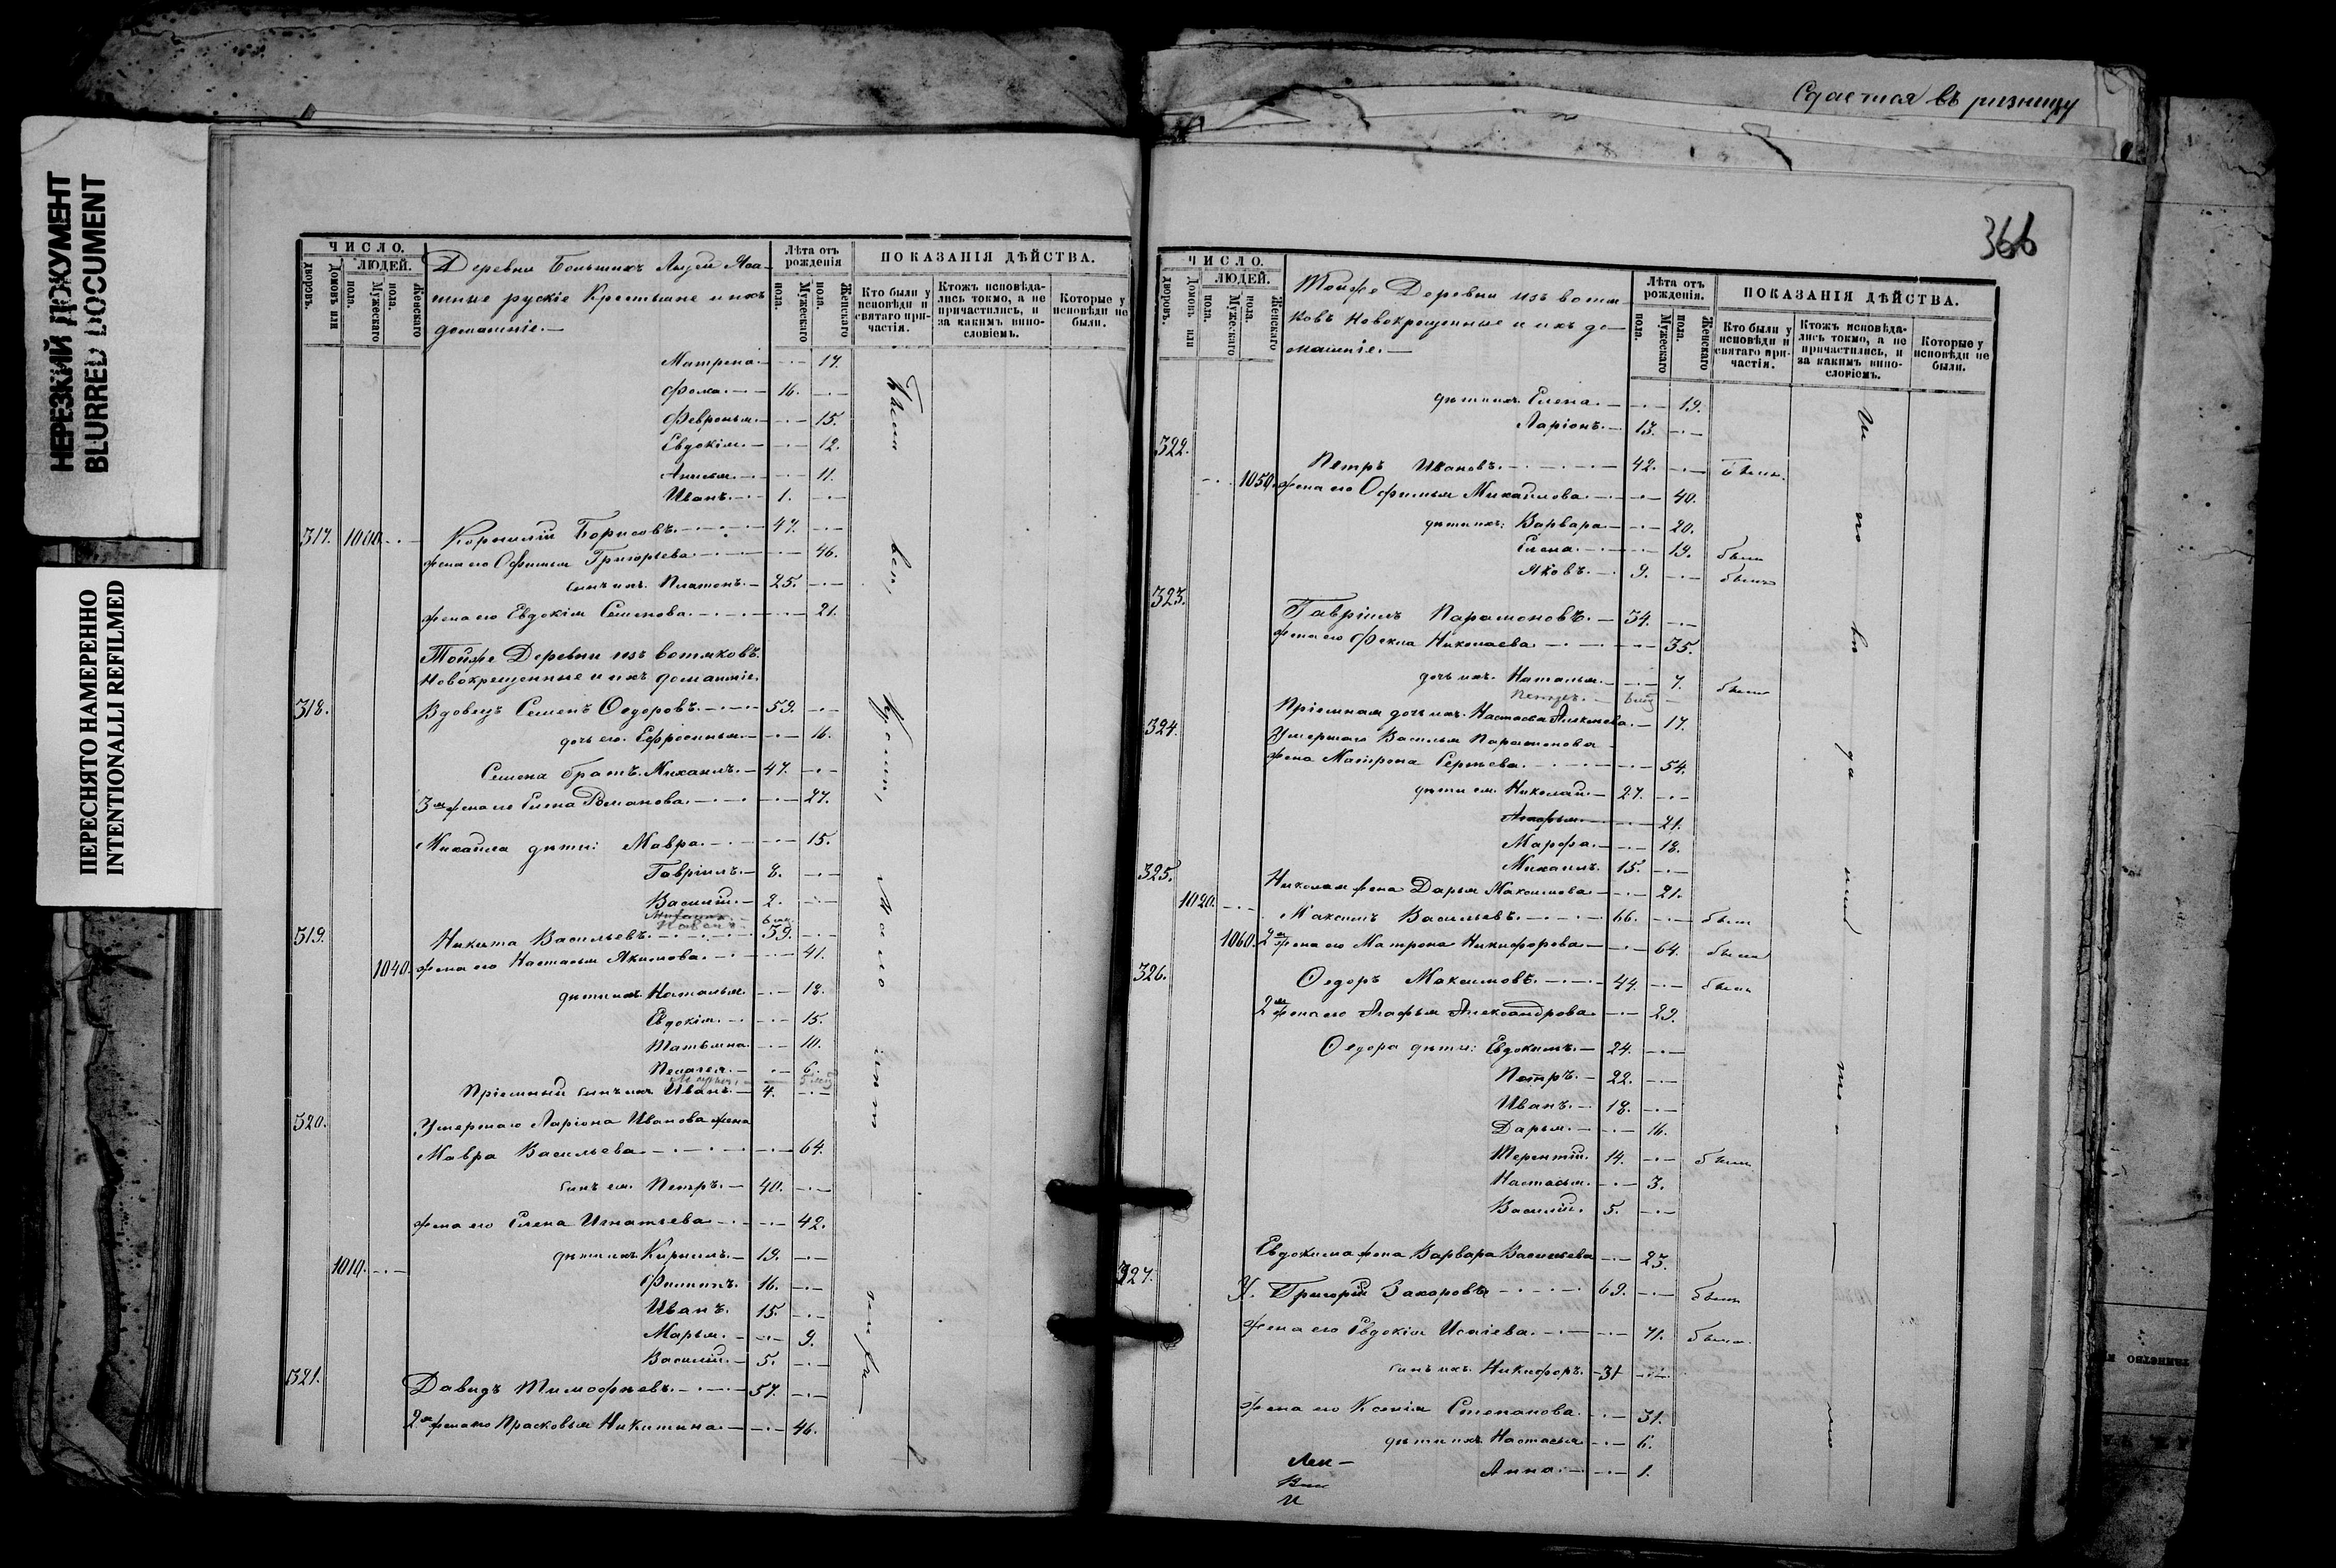 НЕРЕЗКИЙ ДОКУМЕНТ
BLURRED DOCUMENT
ПЕРЕСНЯТО НАМЕРЕННО
INTENTIONALLI REFILMED
ЧИСЛО.
ЛЮДЕЙ.
дворовъ.
Домовъ или
пола.
Мужескаго
пола.
Женскаго
Деревни Большихъ
рускіе Крестьяне и ихъ
домашніе.
Лѣта отъ рожденія
пола.
Мужескаго
пола.
Женскаго
ПОКАЗАНІЯ ДѢЙСТВА.
Кто были у исповѣди и святаго причастія.
Ктожъ исповѣда-
лись токмо, а не
причастились, и
за какимъ вино-
словіемъ.
Которые у
исповѣди не
были.
Матрена. 17.
Фома. 16.
Февронья. 15.
Евдокія. 12.
Анисья. 11.
Иванъ. 1.
317. 1000. Корнилій Борисовъ. 47.
жена его Офимья Григорьева. 46.
сынъ ихъ Платонъ. 25.
жена его Евдокія Семенова. 21.
Тойже Деревни изъ вотяковъ
Новокрещенные и ихъ домашніе.
318. Вдовецъ Семенъ Ѳедоровъ. 59.
дочь его. Ефросинья. 16.
Семена братъ. Михаилъ. 47.
3я жена его Елена Романова. 27.
Михаила дѣти: Мавра. 15.
Гавріилъ. 8.
Василій. 2.
319. Никита Васильевъ. 39.
1040. жена его Настасья Якимова. 41.
дѣти ихъ. Наталья. 18.
Евдокія. 15.
Татьяна. 10.
Пелагея. 6.
Марья.
Пріемный сынъ ихъ Иванъ. 4.
320. Умершаго Ларіона Иванова жена
Мавра Васильева. 64.
сынъ ея. Петръ. 40.
жена его Елена Игнатьева. 42.
1010. дѣти ихъ Кирилъ. 19.
Филипъ. 16.
Иванъ. 15.
Марья. 9.
Василій. 5.
321. Давидъ Тимофѣевъ. 57.
2я жена его Прасковья Никитина. 46.
Сдается въ ризницу
366
ЧИСЛО.
ЛЮДЕЙ.
дворовъ.
Домовъ или
пола.
Мужескаго
пола.
Женскаго
Тойже Деревни изъ вотя-
ковъ Новокрещенные и ихъ до-
машніе.
Лѣта отъ рожденія.
пола.
Мужескаго
пола.
Женскаго
ПОКАЗАНІЯ ДѢЙСТВА.
Кто были у исповѣди и святаго причастія.
Ктожъ исповѣда-
лись токмо, а не
причастились, и
за какимъ вино-
словіемъ.
Которые у
исповѣди не
были.
дѣти ихъ. Елена. 19.
Ларіонъ. 13.
322. Петръ Ивановъ. 42.
1050. жена его Офимья Михайлова. 40.
дѣти ихъ: Варвара. 20.
Елена. 19.
Яковъ. 9.
323. Гавріилъ Парамоновъ. 34.
жена его Фекла Николаева. 35.
дочь ихъ. Наталья. 7.
Пріемная дочь ихъ. Настасья Алексѣева. 17.
324. Умершаго Василья Парамонова
жена Матрена Сергѣева. 54.
дѣти ея. Николай. 27.
Агафья. 21.
Марфа. 18.
Михаилъ. 15.
325. Николая жена Дарья Максимова. 21.
1020. Максимъ Васильевъ. 66.
1060. 2я жена его Матрена Никифорова. 64.
326. Ѳедоръ Максимовъ. 44.
2я жена его Агафья Александрова. 29.
Ѳедора дѣти: Евдокимъ. 24.
Петръ. 22.
Иванъ. 18.
Дарья. 16.
Терентій. 14.
Настасья. 3.
Василій. 5.
Евдокима жена Варвара Васильева 23.
327. У. Григорій Захаровъ 69.
жена его Евдокія Исаіева. 71.
сынъ ихъ. Никифоръ. 31
жена его Ксенія Степанова. 31.
дѣти ихъ. Настасья 6.
Анна. 1.